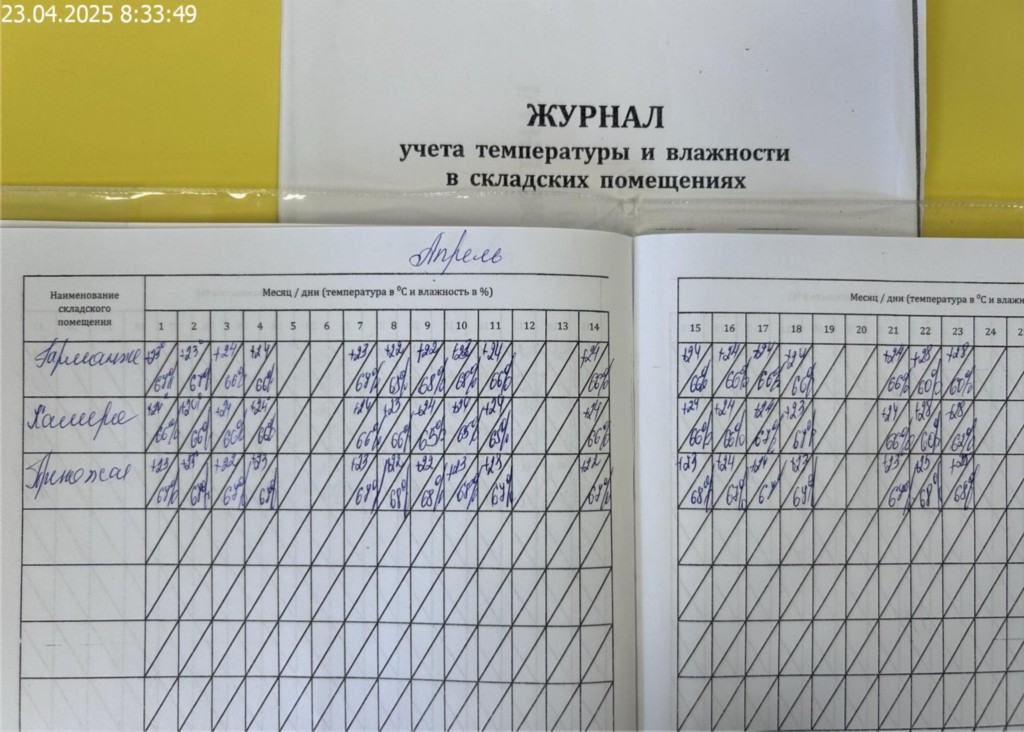 23.04.2025 8:33:49
ЖУРНАЛ
учета температуры и влажности
в складских помещениях
Апрель
Наименование
складского
помещения
Месяц / дни (температура в ⁰С и влажность в %)
1 2 3 4 5 6 7 8 9 10 11 12 13 14
Месяц / дни (температура в ⁰С и влажн
15 16 17 18 19 20 21 22 23 24 2
+23 +24 +24 +23 +22 +22 +24 +24
67% 67% 66% 66% 67% 68% 68% 68% 66% 66%
+24 +24 +24 +24 +24 +28 +28
66% 66% 66% 66% 66% 60% 60%
+24 +24 +24 +24 +23 +24 +24 +24 +24
66% 66% 66% 66% 66% 66% 65% 65% 65% 66%
+24 +24 +24 +23 +24 +28 +28
66% 66% 67% 67% 66% 60%
+23 +23 +22 +23 +23 +22 +22 +23 +23 +22
67% 67% 67% 67% 67% 68% 68% 67% 67% 67%
+23 +24 +24 +23 +23
68% 67% 67% 67% 68% 68%